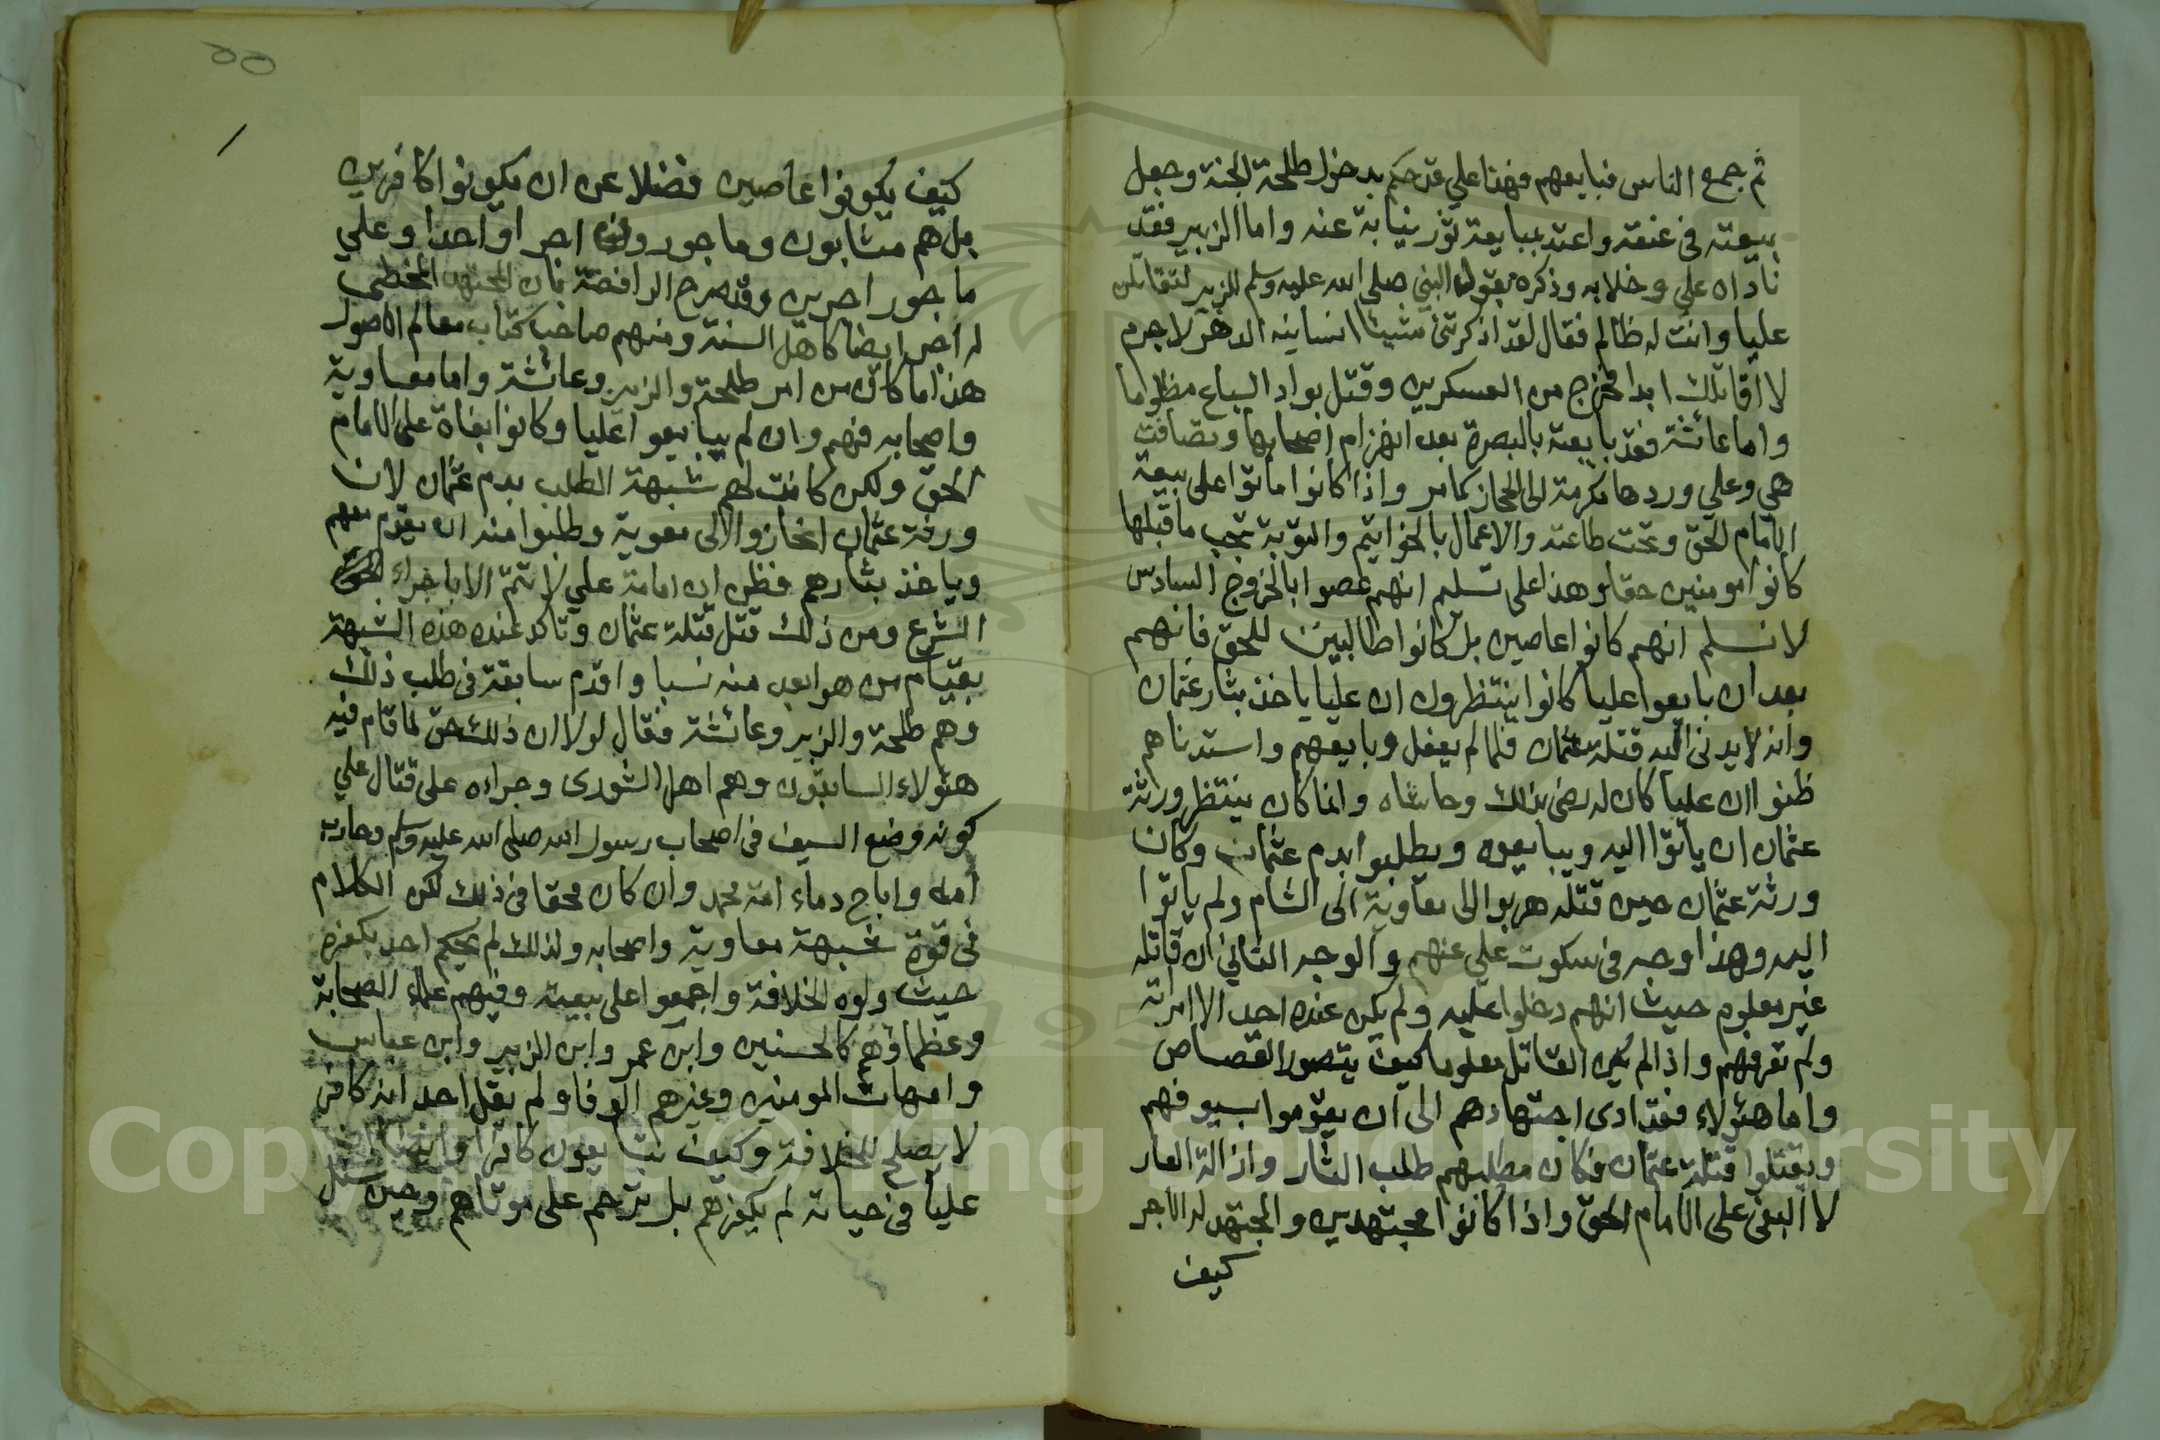 ثم جمع الناس فبايعهم فهذا علي قد حكم بدخول طلحة الجنة وجعل
بيعته في عنقه واعتد بمبايعة ثور نيابة عنه واما الزبير فقد
ناداه علي وخلا به وذكره بقول النبي صلى الله عليه وسلم للزبير لتقاتلن
عليا وانت له ظالم فقال لقد اذكرتني شيئا انسانيه الدهر لا جرم
لا اقاتلك ابدا فخرج من العسكرين وقتل بواد السباع مظلوما
واما عائشة فقد بايعته بالبصرة بعد انهزام اصحابها وتصافت
هي وعلي وردها مكرمة الى الحجاز كما مر واذا كانوا ماتوا على بيعة
الامام الحق وتحت طاعته والاعمال بالخواتيم والتوبة تجب ما قبلها
كانوا مومنين حقا وهذا على تسليم انهم عصوا بالخروج السادس
لا نسلم انهم كانوا عاصين بل كانوا طالبين للحق فانهم
بعد ان بايعوا عليا كانوا ينتظرون ان عليا ياخذ بثار عثمان
وانه لا يدني اليه قتلة عثمان فلما لم يفعل وبايعهم واستدناهم
ظنوا ان عليا كان له رضى بذلك وحاشاه وانما كان ينتظر ورثة
عثمان ان ياتوا اليه ويبايعوه ويطلبوا بدم عثمان وكان
ورثة عثمان حين قتله هربوا الى معاوية الى الشام ولم ياتوا
اليه وهذا وجه في سكوت علي عنهم والوجه الثاني ان قاتله
غير معلوم حيث انهم دخلوا عليه ولم يكن عنده احد الا امراته
ولم تعرفهم واذا لم يكن القاتل معلوما كيف يتصور القصاص
واما هئولاء فقد ادى اجتهادهم الى ان يقوموا بسيوفهم
ويقتلوا قتلة عثمان فكان مطلبهم طلب الثار وازالة العار
لا البغي على الامام الحق واذا كانوا مجتهدين والمجتهد له الاجر
كيف
٥٥
كيف يكونوا عاصين فضلا عن ان يكونوا كافرين
بل هم مثابون وماجورون اجرا واحدا وعلي
ماجور اجرين وقد صرح الرافضة بان المجتهد المخطى
له اجر ايضا كاهل السنة ومنهم صاحب كتاب معالم الاصول
هذا ما كان من امر طلحة والزبير وعائشة واما معاوية
واصحابه فهم وان لم يبايعوا عليا وكانوا بغاة على الامام
الحق ولكن كانت لهم شبهة الطلب بدم عثمان لان
ورثة عثمان انحازوا الى معوية وطلبوا منه ان يقدم معهم
وياخذ بثارهم فظن ان امامة علي لا تتم الا باجراء
الشرع ومن ذلك قتل قتلة عثمان وتاكد عنده هذه الشبهة
بقيام من هو ابعد منه نسبا واقدم سابقة في طلب ذلك
وهم طلحة والزبير وعائشة فقال لولا ان ذلك حق لما قام فيه
هئولاء السابقون وهم اهل الشورى وجراه على قتال علي
كونه وضع السيف في اصحاب رسول الله صلى الله عليه وسلم وحارب
امه واباح دماء امة محمد وان كان محقا في ذلك لكن الكلام
في قوة شبهة معاوية واصحابه ولذلك لم يحكم احد بكفره
حيث ولوه الخلافة واجمعوا على بيعته وفيهم علماء الصحابة
وعظماؤهم كالحسنين وابن عمر وابن الزبير وابن عباس
وامهات المومنين وغيرهم الوفا ولم يقل احد انه كافر
لا يصلح للخلافة وكيف نبايعون كافرا وايضا
عليا في حياته لم يكفرهم بل ترحم على موتاهم وحين سئل
Copyright © King Saud University
1957